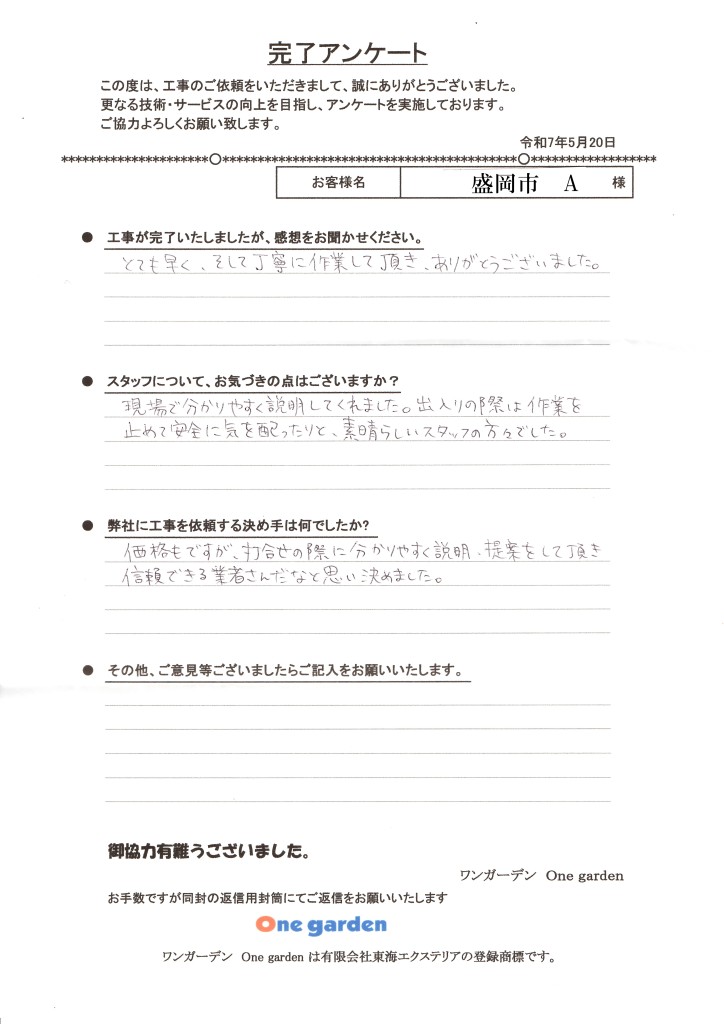 完了アンケート
この度は、工事のご依頼をいただきまして、誠にありがとうございました。
更なる技術・サービスの向上を目指し、アンケートを実施しております。
ご協力よろしくお願い致します。
令和7年5月20日
******************○**********************************○******************
お客様名 盛岡市 A 様
● 工事が完了いたしましたが、感想をお聞かせください。
とても早く、そして丁寧に作業して頂き、ありがとうございました。
● スタッフについて、お気づきの点はございますか？
現場で分かりやすく説明してくれました。出入りの際は作業を
止めて安全に気を配ったりと、素晴らしいスタッフの方々でした。
● 弊社に工事を依頼する決め手は何でしたか?
価格もですが、打合せの際に分かりやすく説明、提案をして頂き
信頼できる業者さんだなと思い決めました。
● その他、ご意見等ございましたらご記入をお願いいたします。
御協力有難うございました。
ワンガーデン One garden
お手数ですが同封の返信用封筒にてご返信をお願いいたします
One garden
ワンガーデン One garden は有限会社東海エクステリアの登録商標です。